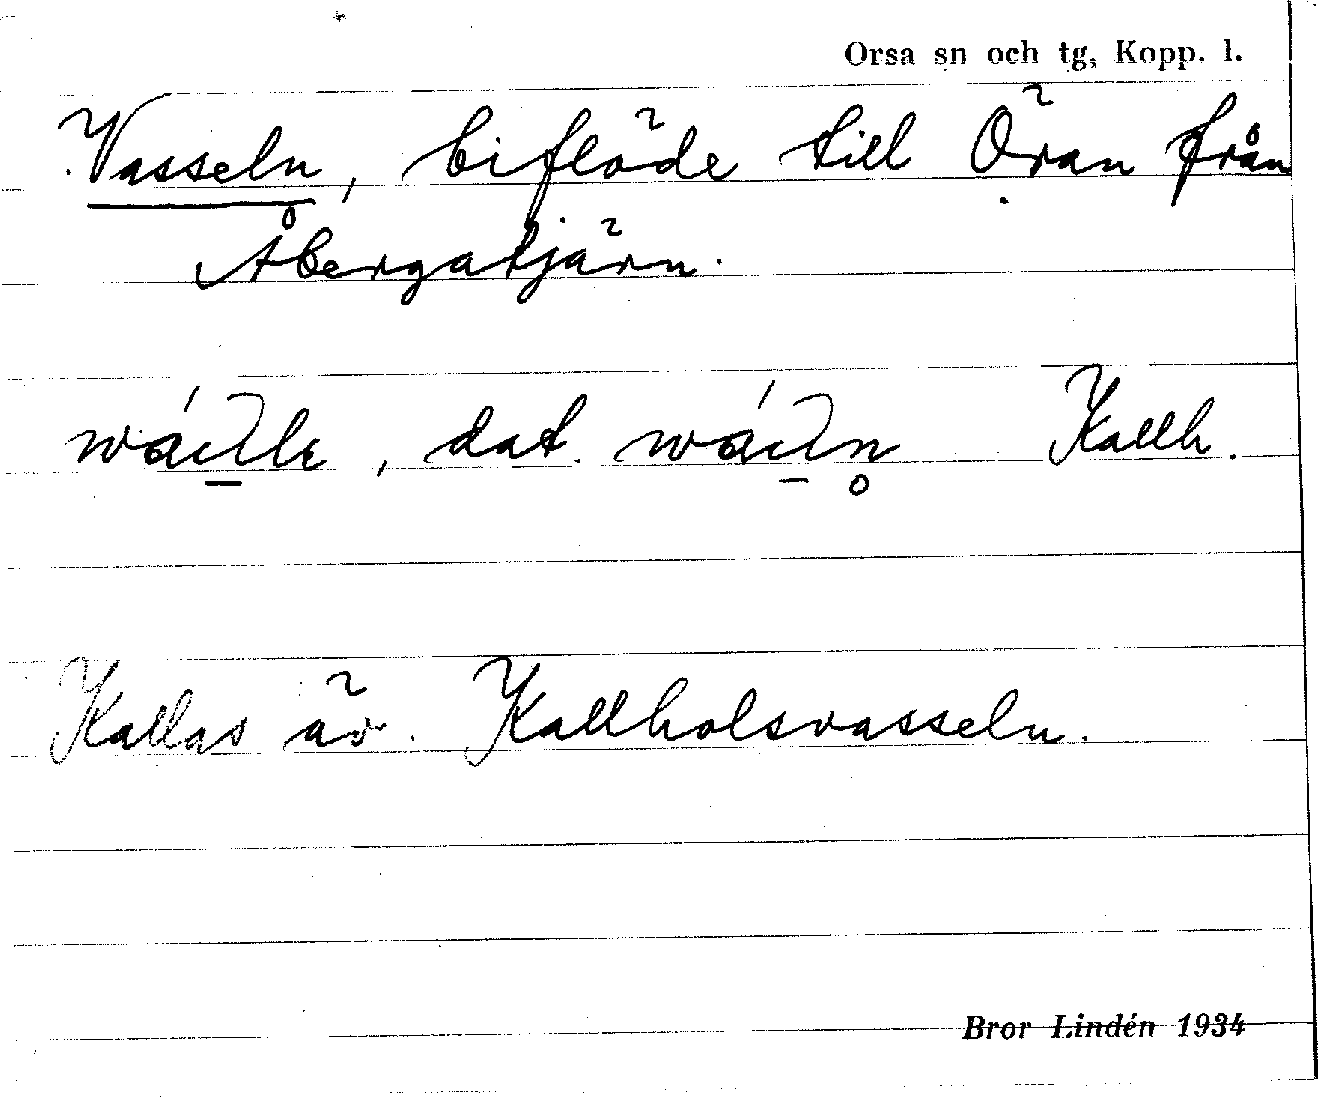 Orsa sn och tg, Kopp. l.
Vasseln, biflöde till Öran från
Åbergatjärn.
, dat. Kallh.
Kallas äv. Kallholsvasseln.
Bror Lindén 1934